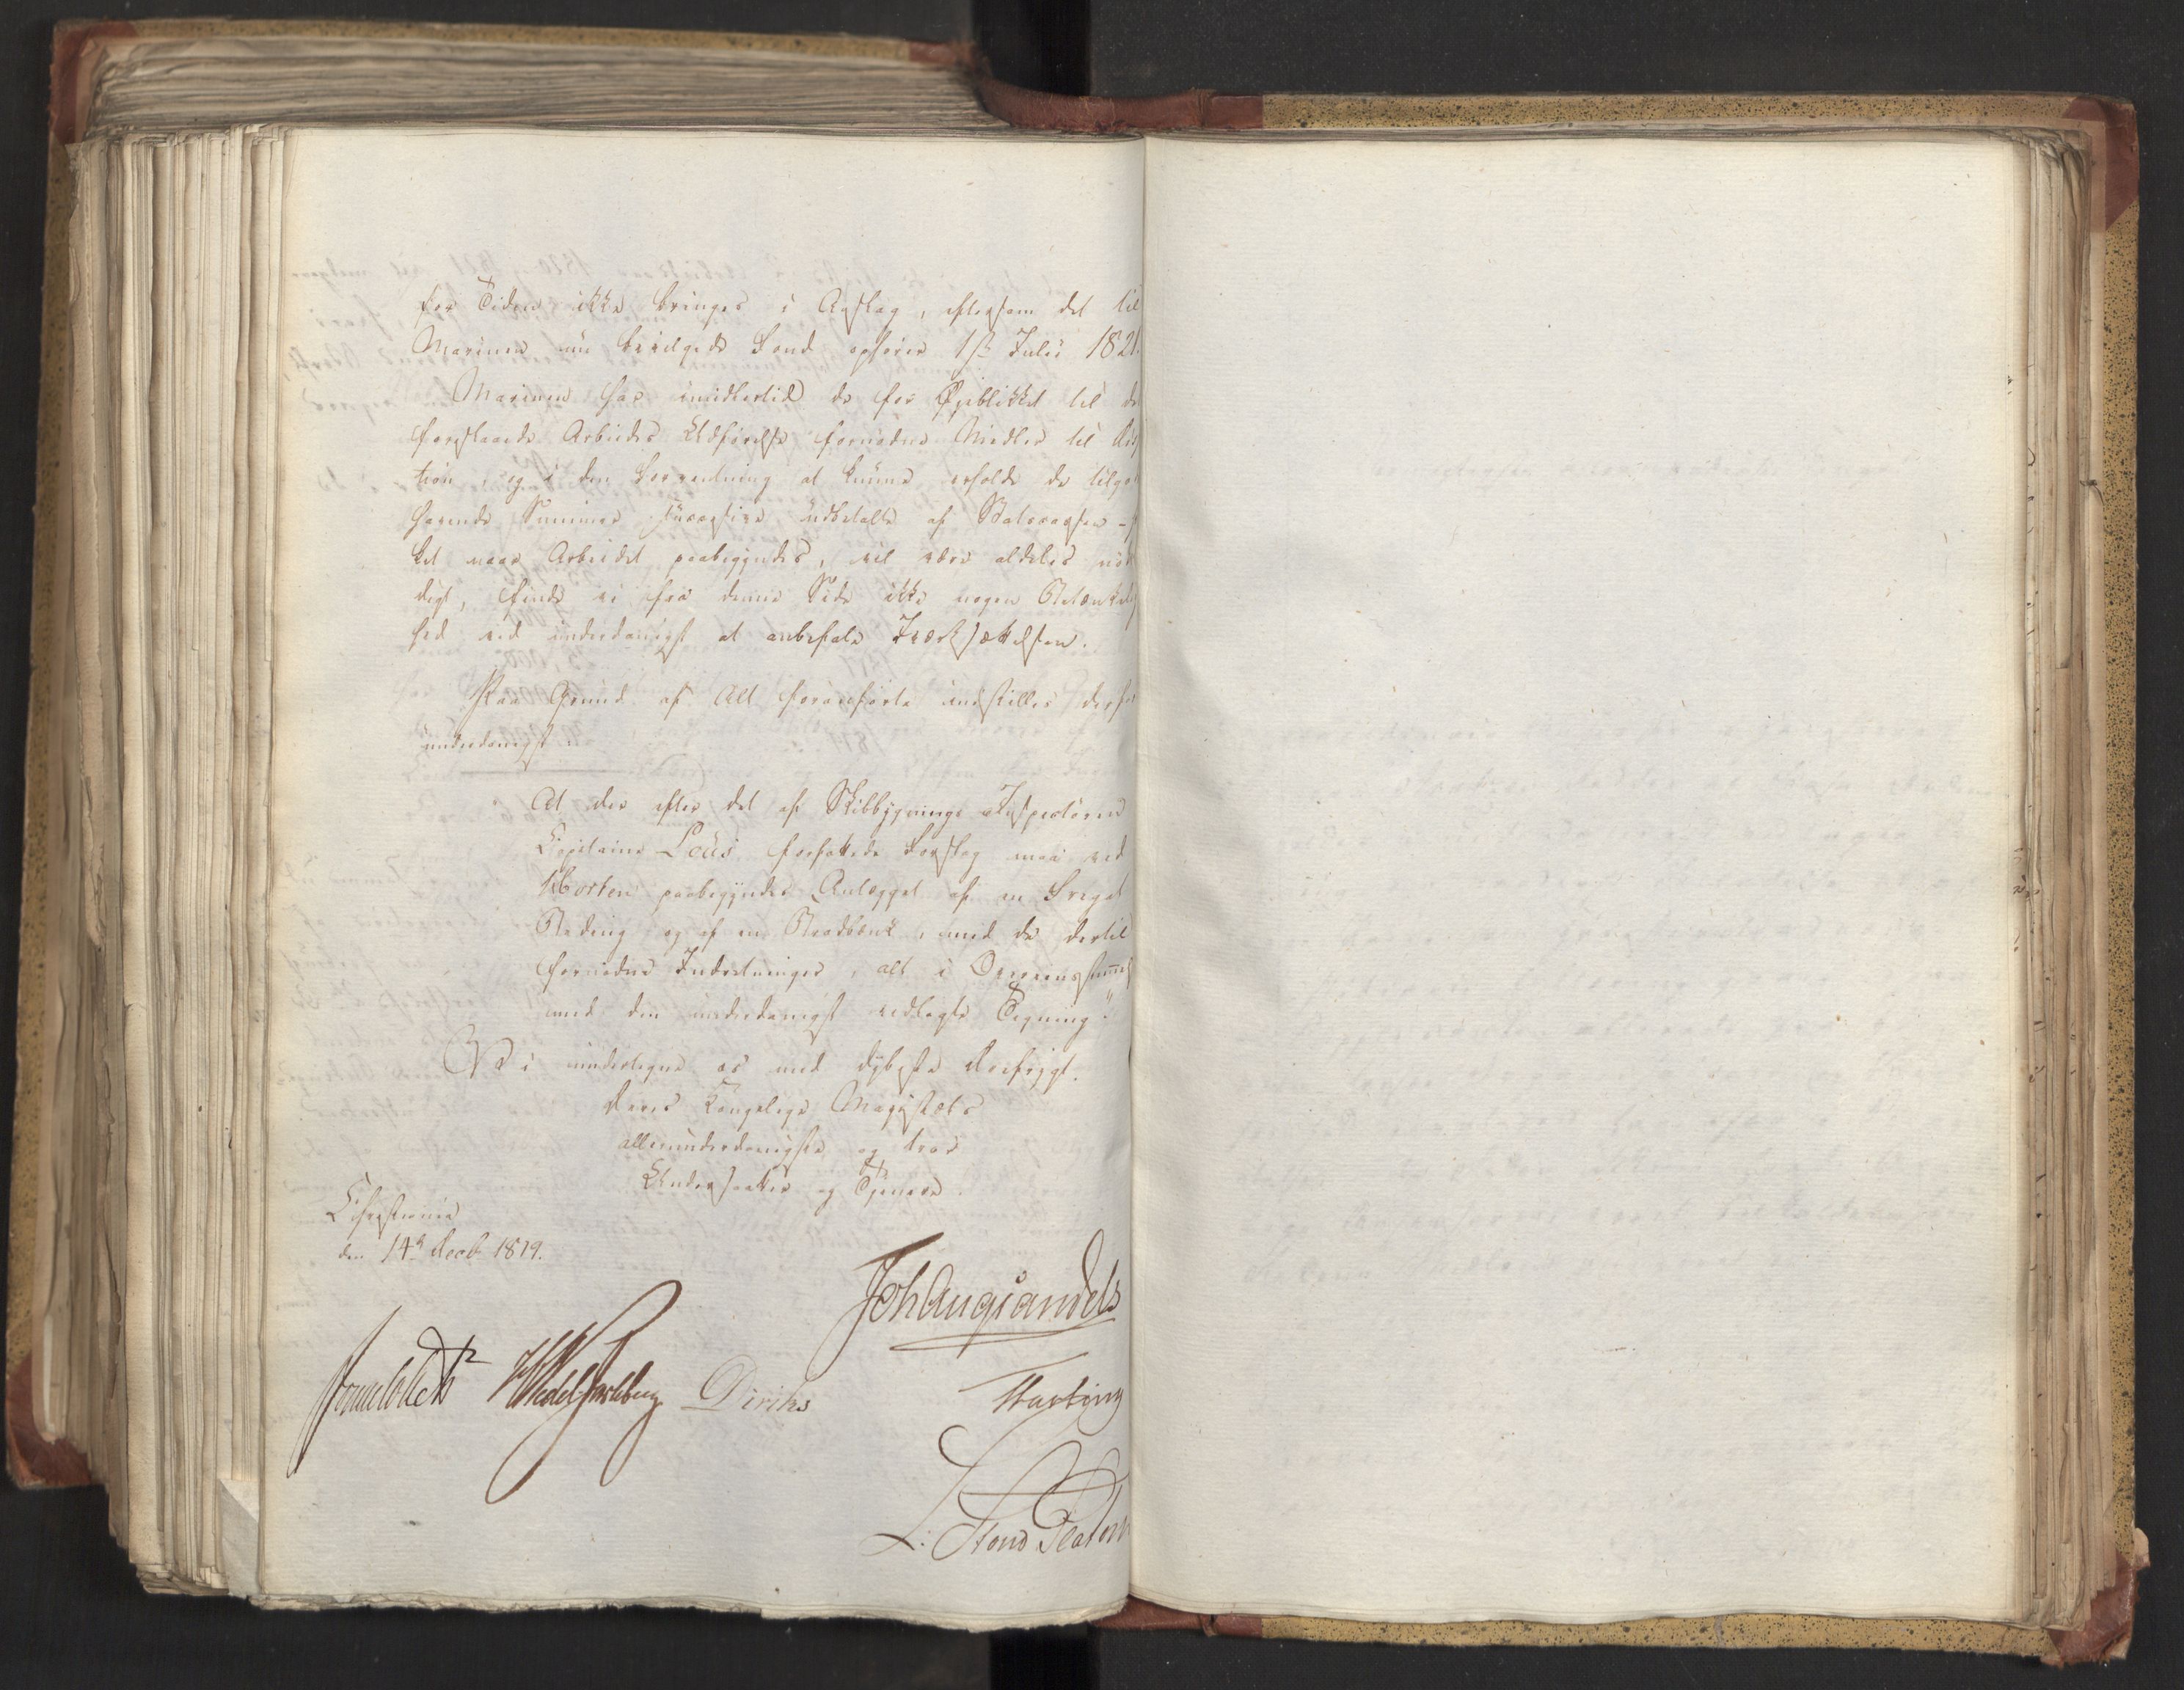 for Tiden ikke bringes i Anslag, eftersom det til
Marinen nu bevilgede Fond ophører 1ste Julii 1821.
Marinen har imidlertid de for Øieblikket til de
foreslaaede Arbeiders Udførelse fornødne Midler til Dis
tion, og i den Forventning at kunne erholde de tilgo
havende Summer successive udbetalte af Statscassen
ket naar Arbeidet paabegyndes, vil være aldeles nød
digt, finde vi fra denne Side ikke nogen Betænkelig
hed ved underdanigst at anbefale Iværksættelsen.
Paa Grund af Alt foranførte indstilles derfor
underdanigst
At der efter det af Skibbygnings Inspecteuren
Capitaine Loüs forfattede Forslag maa ved
Horten paabegyndes Anlægget af en Fregat
Beding og af en Bradbænk, med de dertil
fornødne Indretninger, alt i Overeensstemmelse
med den underdanigst vedlagte Tegning."
Vi undertegne os med dybeste Ærefrygt.
Deres Kongelige Majestæts
allerunderdanigste og troe
Undersaatter og Tjenere.
Christiania
den 14de Decb 1819.
Joh Aug Sandels
Sommerhielm HWedel Jarlsberg Diriks Motzfeldt
Fasting
L: Stoud Platou